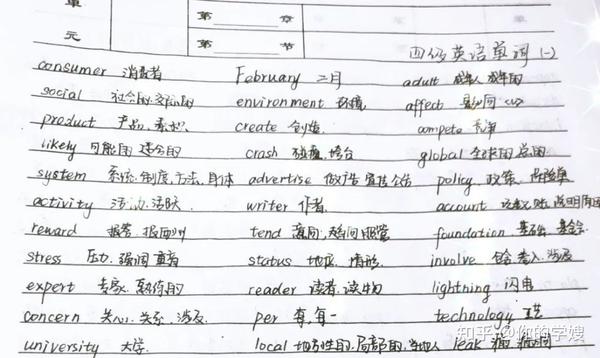 单
元
第 章
第 节
四级英语单词(一)
consumer 消费者 February 二月 adult 成年人 成年的
social 社会的 交际的 environment 环境 affect 影响
product 产品 create 创造 compete 竞争
likely 可能的 适合的 crash 碰撞 垮台 global 全球的 总的
system 系统.制度.方法.身体 advertise 做广告 宣传 公告 policy 政策
activity 活动.活跃 writer 作者 account
reward 报答.报酬 tend 趋向 status 地位.情形
stress 压力.强调 reader 读者.读物 foundation 基础.基金会
expert 专家.熟练的 per 每.每一 involve 包含 卷入.涉及
concern 关心.关系.涉及 local 地方性的.局部的 lightning 闪电
university 大学 leak 漏 technology
知乎 @你的学嫂